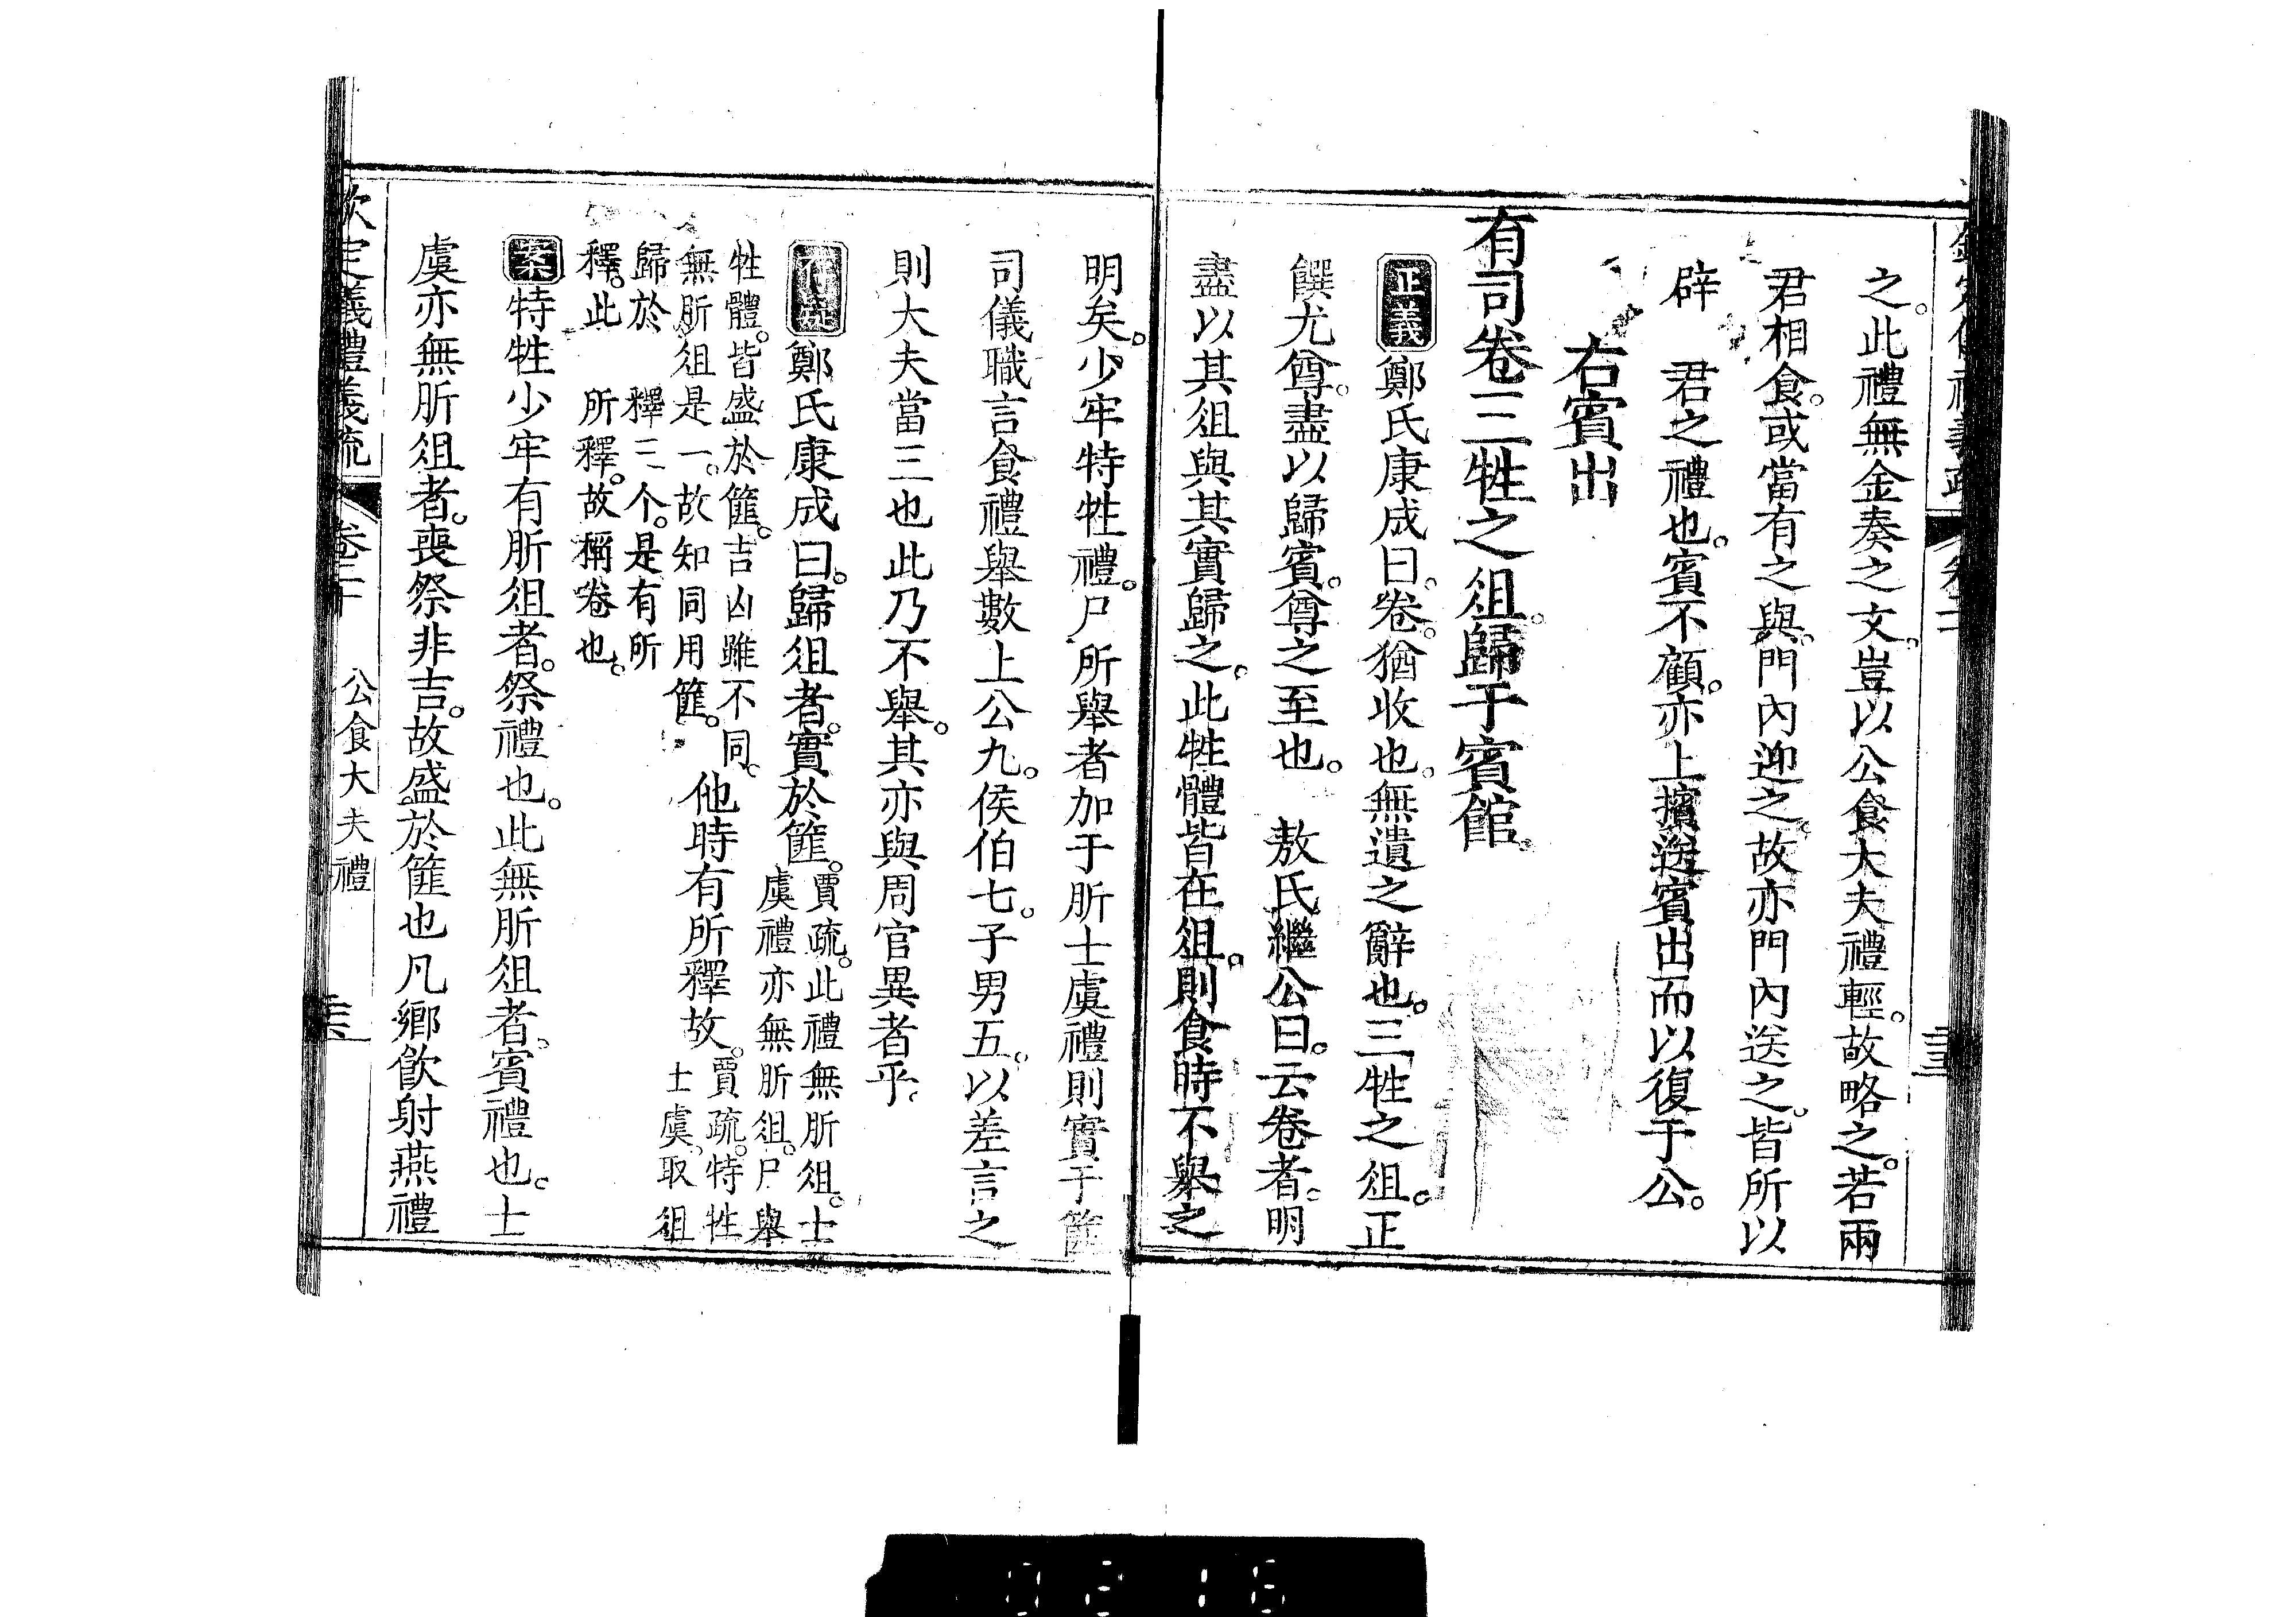 之。此禮無金奏之文。豈以公食大夫禮輕。故略之。若兩
君相食。或當有之與。門內迎之。故亦門內送之。皆所以
辟 君之禮也。賓不顧。亦上擯送賓出而以復于公。
右賓出
有司卷三牲之俎。歸于賓館。
正義鄭氏康成曰。卷。猶收也。無遺之辭也。三牲之俎。正
饌尤尊。盡以歸賓。尊之至也。 敖氏繼公曰。云卷者。明
盡以其俎與其實歸之。此牲體皆在俎。則食時不舉之
明矣。少牢特牲禮。尸所舉者加于肵士虞禮則實于篚
司儀職言食禮舉數上公九。侯伯七。子男五。以差言之
則大夫當三也此乃不舉。其亦與周官異者乎。
鄭氏康成曰。歸俎者。實於篚。賈疏。此禮無肵俎。士
虞禮亦無肵俎。尸舉
牲體。皆盛於篚。吉凶雖不同。
無肵俎是一。故知同用篚。他時有所釋故。賈疏。特牲
士虞。取俎
歸於 釋三个。是有所
釋。此 所釋。故稱卷也。
案特牲少牢有肵俎者。祭禮也。此無肵俎者。賓禮也。士
虞亦無肵俎者。喪祭非吉。故盛於篚也凡鄉飲射燕禮
欽定儀禮義疏 卷二十 公食大夫禮
0216